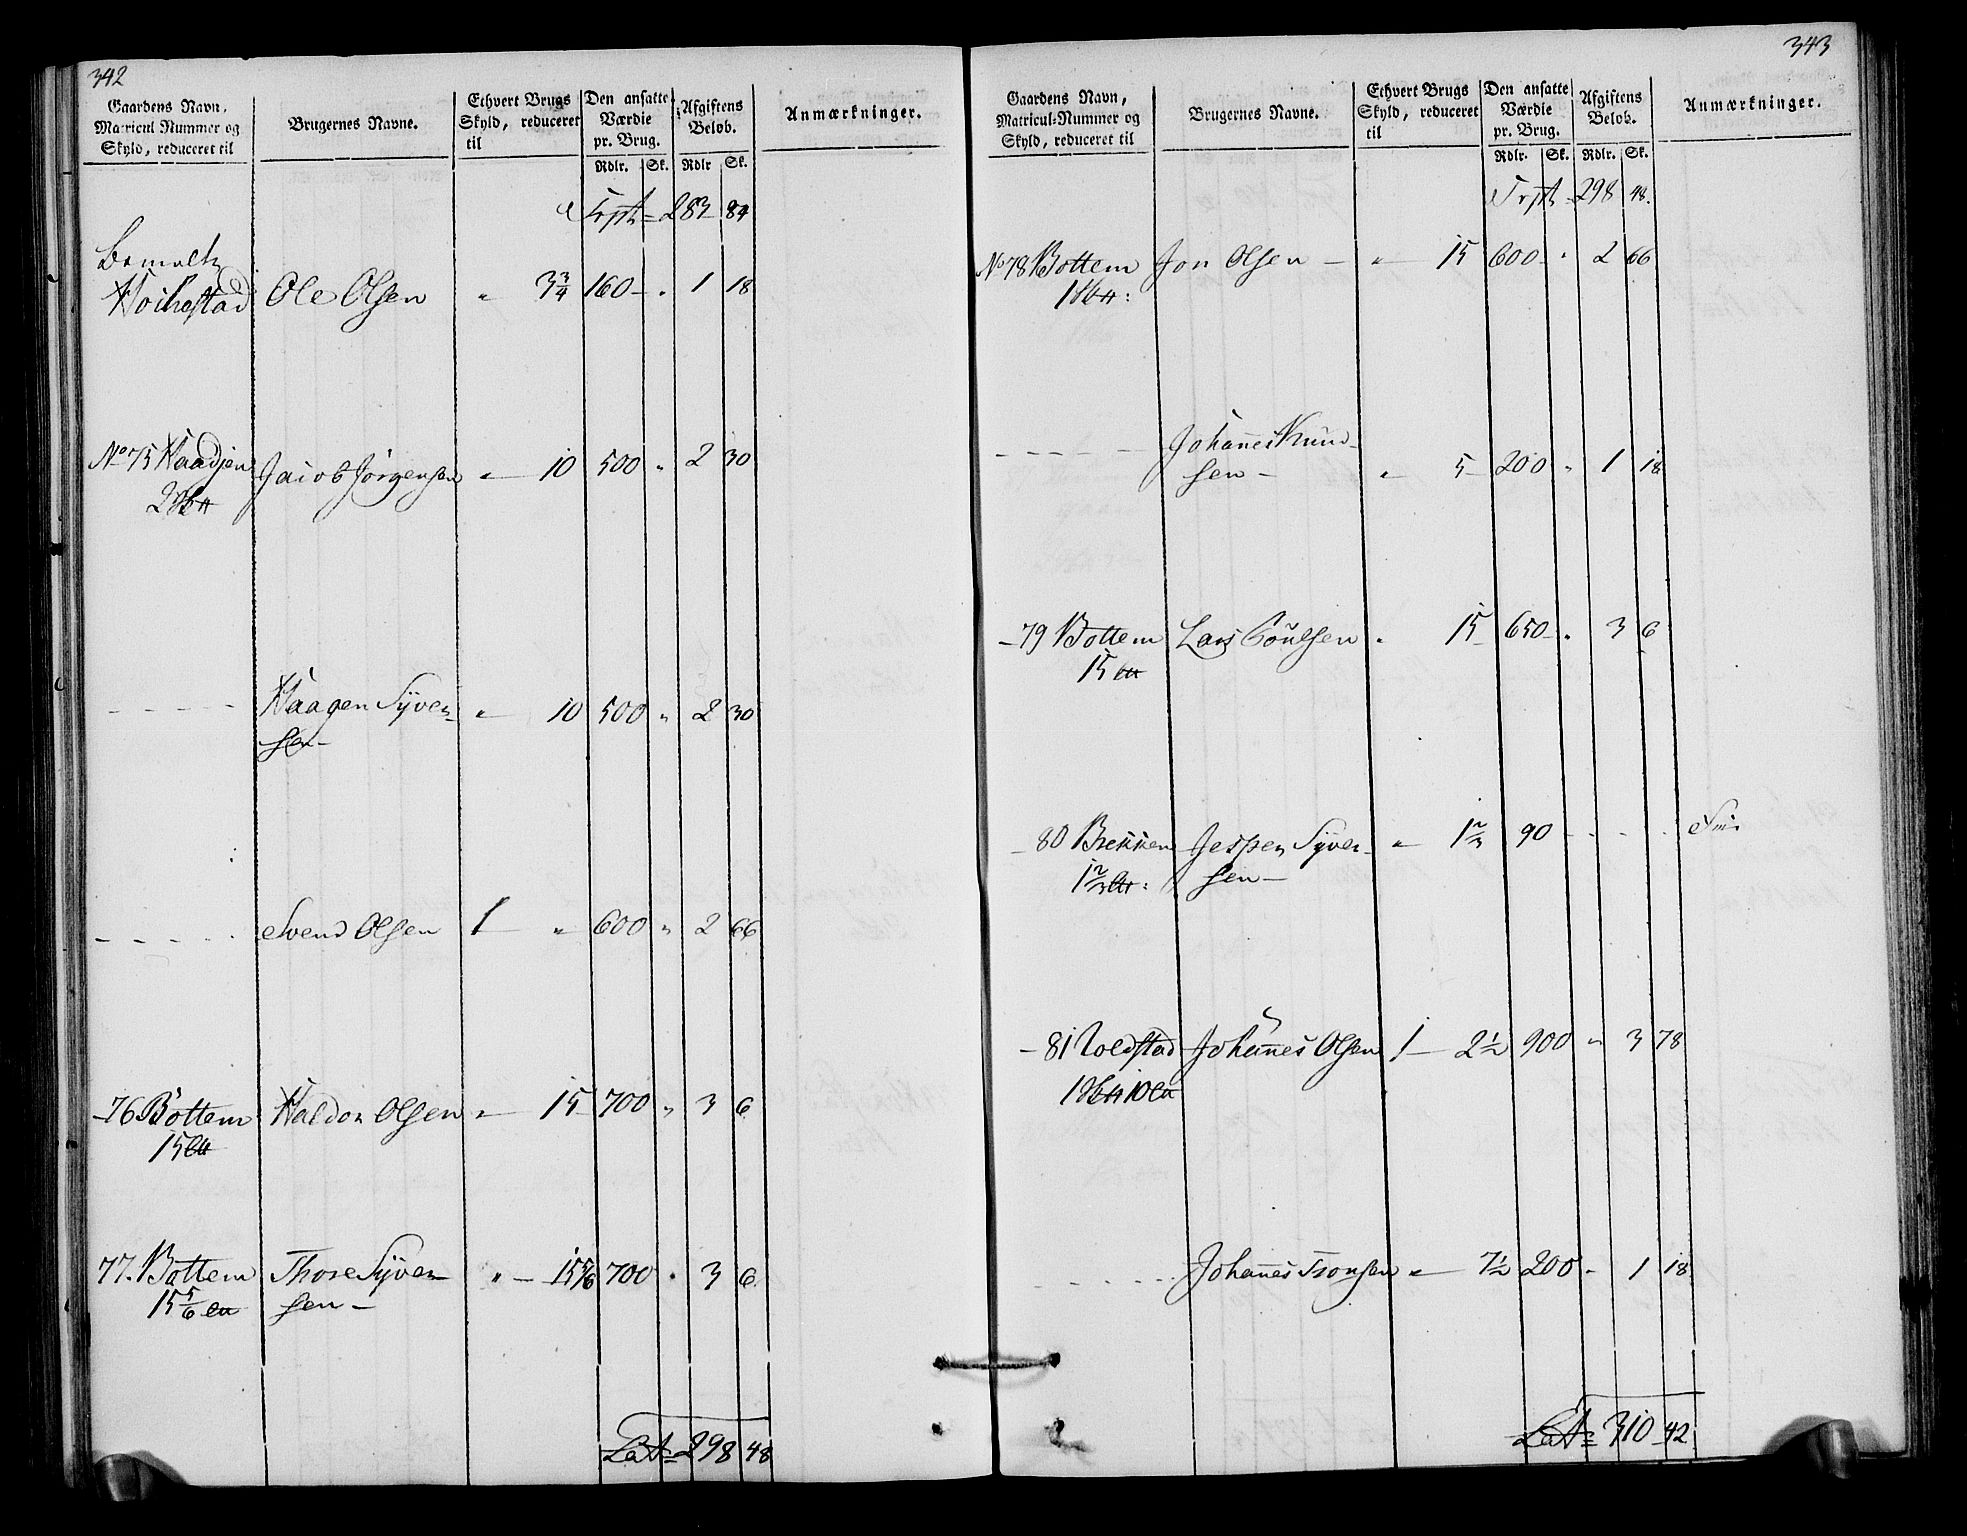 342
Gaardens Navn, Matricul Nummer og Skyld, reduceret til | Brugernes Navne. | Ethvert Brugs Skyld, reduceret til | Den ansatte Værdie pr. Brug. | Afgiftens Beløb. | Anmærkninger.
Rdlr. | Sk. | Rdlr | Sk.
Trspt = 283 84
Bemeldte
Hoihestad | Ole Olsen | " 3 3/4 | 160 - " | 1 | 18
No 75 Haadjen | Jacob Jörgensen | " 10 | 500 " | 2 | 30
2
- - - - | Haagen Syver- | " 10 | 500 " | 2 | 30
sen -
- - - - | Svend Olsen | 1 " | 600 " | 2 | 66
- 76 Bottem | Haldor Olsen | " 15 | 700 " | 3 | 6
15
77. Bottem | Thore Syver- | " 15 5/6 | 700 " | 3 | 6
15 5/6 | sen -
Lat = 298 48
343
Gaardens Navn, Matricul-Nummer og Skyld, reduceret til | Brugernes Navne. | Ethvert Brugs Skyld, reduceret til | Den ansatte Værdie pr. Brug. | Afgiftens Beløb. | Anmærkninger.
Rdlr. | Sk. | Rdlr. | Sk.
Trspt = 298 48.
No 78 Bottem | Jon Olsen - | " 15 | 600 - " | 2 | 66
1
- - - - | Johannes Knud-
sen - | " 5 | 200 " | 1 | 18
- 79 Bottem | Lars Poulsen | " 15 | 650 - " | 3 | 6
15
- 80 Brekken | Jesper Syver- | " 1 2/3 | 90 - - - - | Fri
1 2/3 | sen -
- 81 Voldstad | Johannes Olsen | 1 - 2 1/2 | 900 " | 3 | 78
1 10
- - - - | Johannes Tronsen | " 7 1/2 | 200 - | 1 | 18
Lat = 310 42